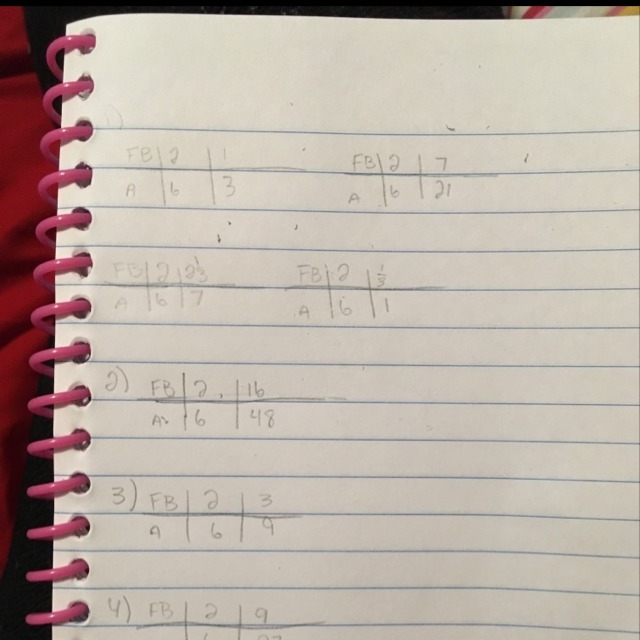 1)
FB 2 1 FB 2 7
A 6 3 A 6 21
FB 2 FB 2 1/3
A 6 7 A 6 1
2) FB 2 16
A 6 48
3) FB 2 3
A 6 9
4) FB 2 9